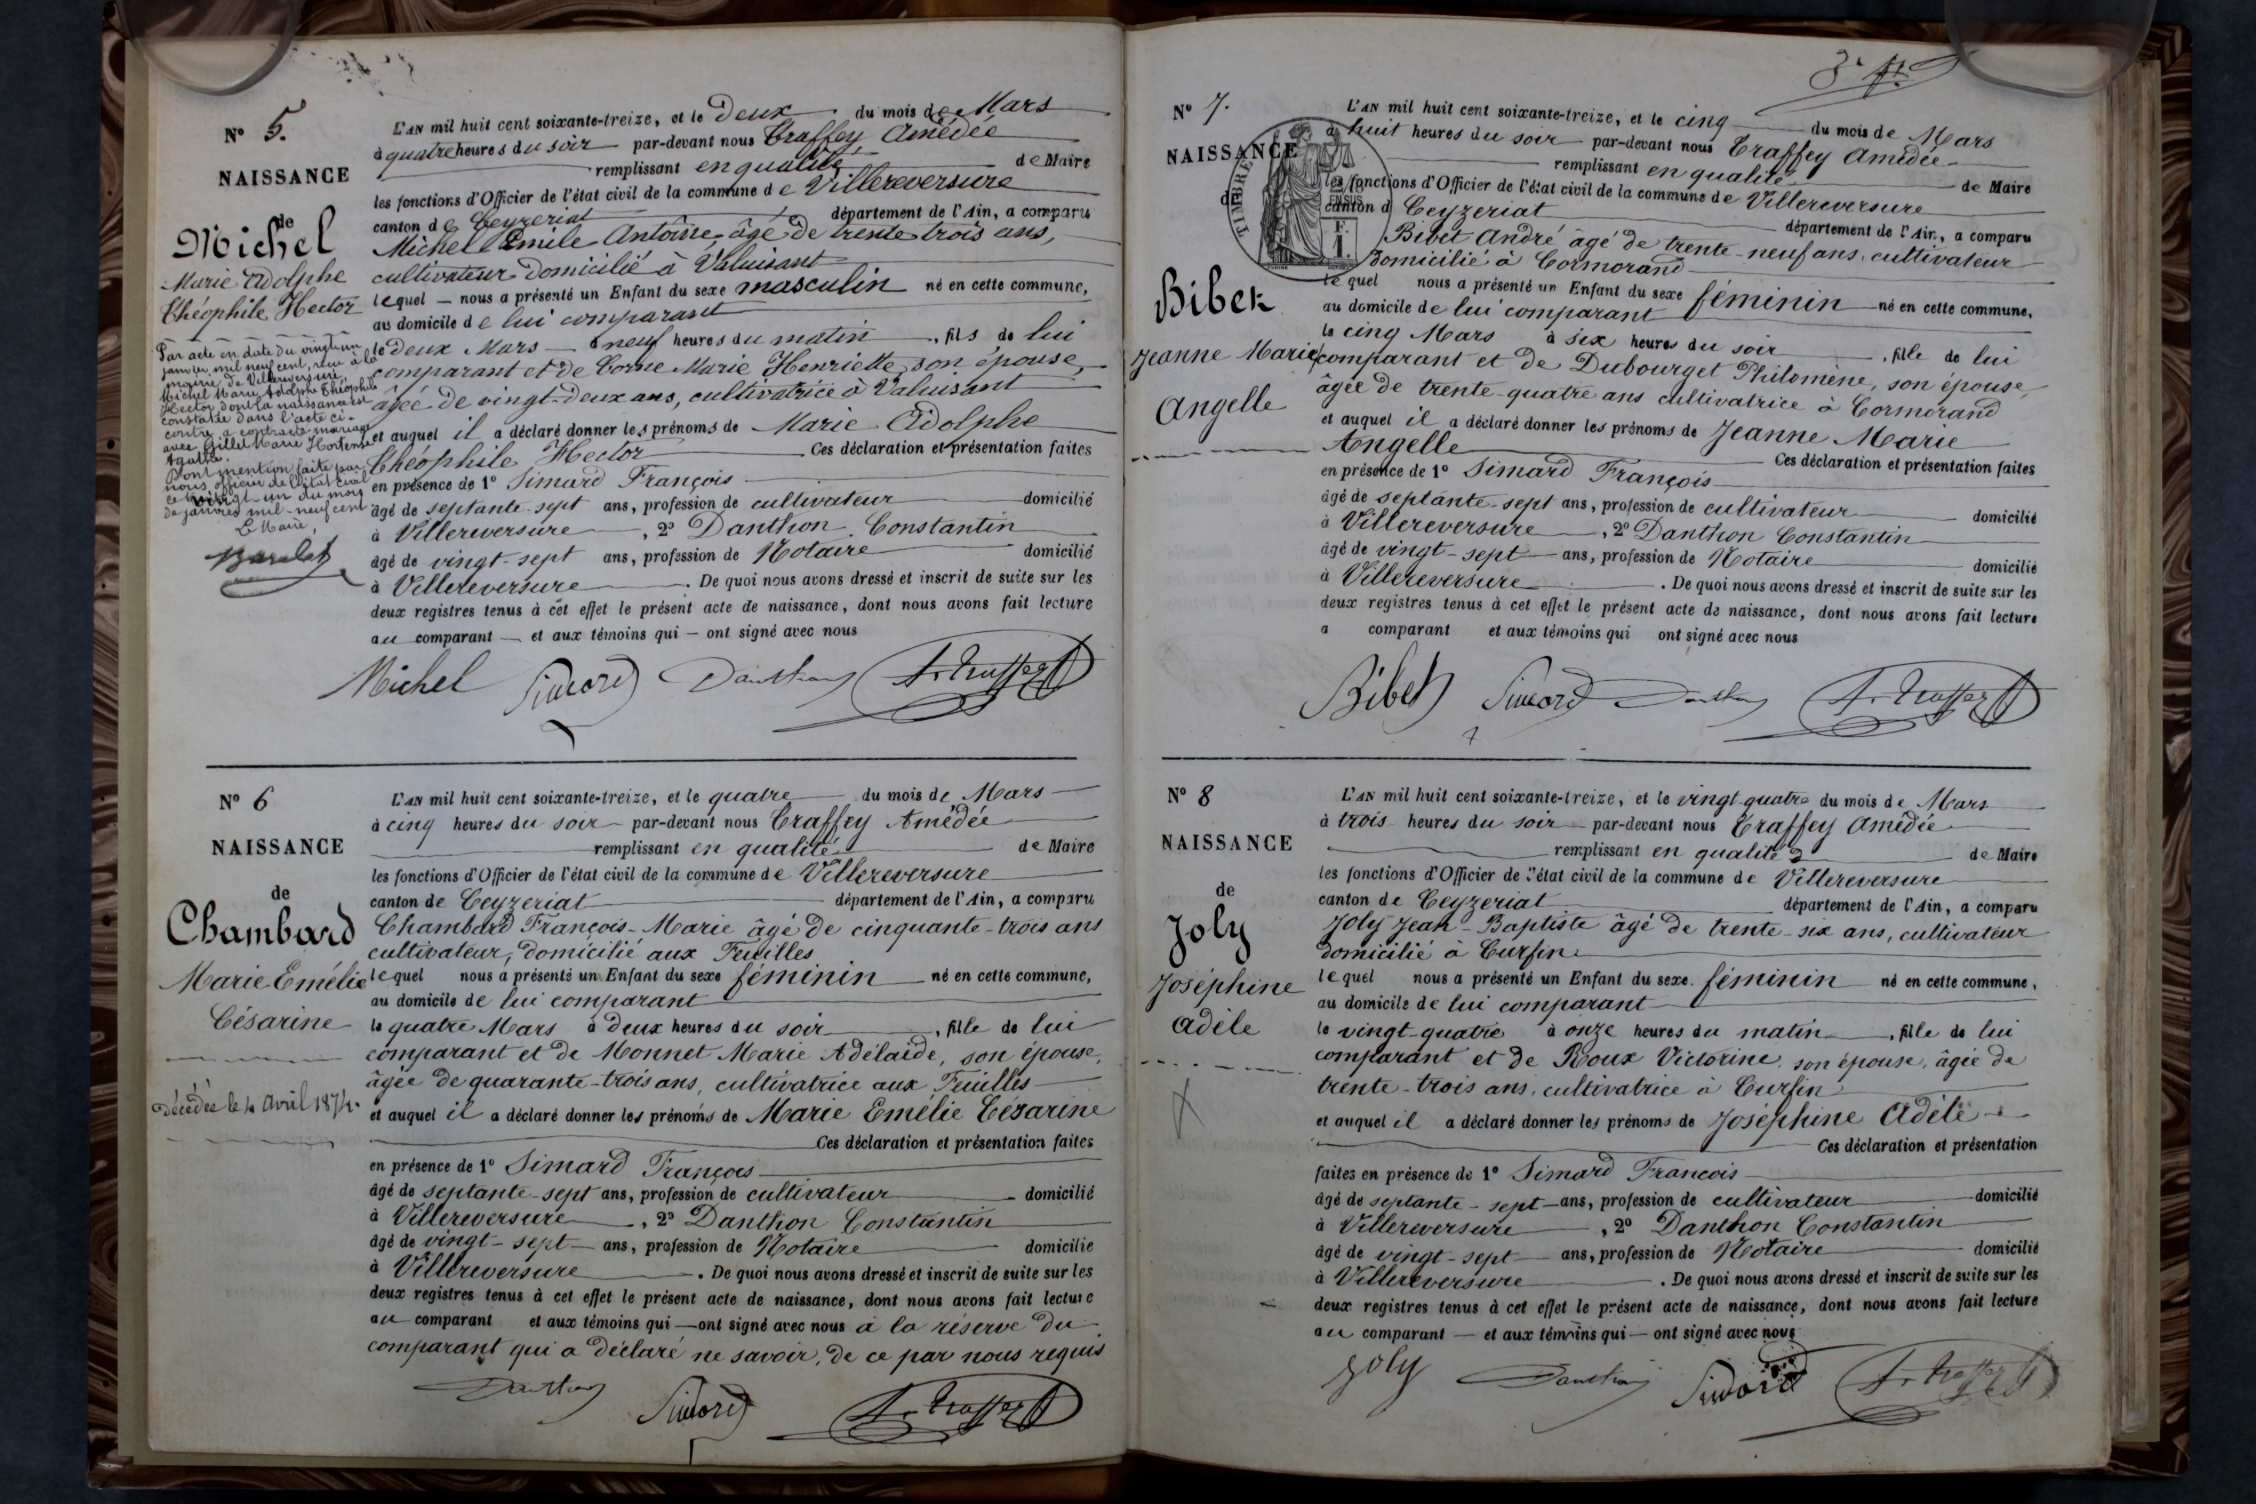 N° 5.
NAISSANCE
de
Michel
Marie Adolphe
Théophile Hector
Par acte en date du vingt un
janvier mil neuf cent, reçu à la
mairie de Villereversure,
Michel Marie Adolphe Théophile
Hector dont la naissance est
constatée dans l'acte ci-
contre a contracté mariage
avec Gillet Marie Hortense
Agathe.
Dont mention faite par
nous, officier de l'état civil
le vingt-un du mois
de janvier mil-neuf cent
Le Maire,
L'AN mil huit cent soixante-treize, et le Deux du mois de Mars
à quatre heures du soir par-devant nous Traffey Amédée
remplissant en qualité de Maire
les fonctions d'Officier de l'état civil de la commune de Villereversure
canton de Ceyzeriat département de l'Ain, a comparu
Michel Emile Antoine âgé de trente trois ans,
cultivateur domicilié à Valuisant
lequel nous a présenté un Enfant du sexe masculin né en cette commune,
au domicile de lui comparant
le deux Mars à neuf heures du matin, fils de lui
comparant et de Corne Marie Henriette son épouse,
âgée de vingt-deux ans, cultivatrice à Valuisant
et auquel il a déclaré donner les prénoms de Marie Adolphe
Théophile Hector Ces déclaration et présentation faites
en présence de 1° Simard François
âgé de septante-sept ans, profession de cultivateur domicilié
à Villereversure, 2° Danthon Constantin
âgé de vingt-sept ans, profession de Notaire domicilié
à Villereversure. De quoi nous avons dressé et inscrit de suite sur les
deux registres tenus à cet effet le présent acte de naissance, dont nous avons fait lecture
au comparant et aux témoins qui ont signé avec nous
Michel Simard Danthon A. Traffey
N° 6
NAISSANCE
de
Chambard
Marie Emélie
Césarine
Décédée le 4 Avril 1874.
L'AN mil huit cent soixante-treize, et le quatre du mois de Mars
à cinq heures du soir par-devant nous Traffey Amédée
remplissant en qualité de Maire
les fonctions d'Officier de l'état civil de la commune de Villereversure
canton de Ceyzeriat département de l'Ain, a comparu
Chambard François-Marie âgé de cinquante-trois ans
cultivateur, domicilié aux Feuilles
lequel nous a présenté un Enfant du sexe féminin né en cette commune,
au domicile de lui comparant
le quatre Mars à deux heures du soir, fille de lui
comparant et de Monnet Marie Adélaïde, son épouse,
âgée de quarante-trois ans, cultivatrice aux Feuilles
et auquel il a déclaré donner les prénoms de Marie Emélie Césarine
Ces déclaration et présentation faites
en présence de 1° Simard François
âgé de septante-sept ans, profession de cultivateur domicilié
à Villereversure, 2° Danthon Constantin
âgé de vingt-sept ans, profession de Notaire domicilié
à Villereversure. De quoi nous avons dressé et inscrit de suite sur les
deux registres tenus à cet effet le présent acte de naissance, dont nous avons fait lecture
au comparant et aux témoins qui ont signé avec nous à la réserve du
comparant qui a déclaré ne savoir, de ce par nous requis
Danthon Simard A. Traffey
N° 7.
NAISSANCE
de
TIMBRE
Bibet
Jeanne Marie
Angelle
L'AN mil huit cent soixante-treize, et le cinq du mois de Mars
à huit heures du soir par-devant nous Traffey Amédée
remplissant en qualité de Maire
les fonctions d'Officier de l'état civil de la commune de Villereversure
canton d Ceyzeriat département de l'Ain, a comparu
Bibet André âgé de trente-neuf ans, cultivateur
domicilié à Cormorand
lequel nous a présenté un Enfant du sexe féminin né en cette commune,
au domicile de lui comparant
le cinq Mars à six heures du soir, fille de lui
comparant et de Dubourget Philomène, son épouse,
âgée de trente-quatre ans cultivatrice à Cormorand
et auquel il a déclaré donner les prénoms de Jeanne Marie
Angelle Ces déclaration et présentation faites
en présence de 1° Simard François
âgé de septante-sept ans, profession de cultivateur domicilié
à Villereversure, 2° Danthon Constantin
âgé de vingt-sept ans, profession de Notaire domicilié
à Villereversure. De quoi nous avons dressé et inscrit de suite sur les
deux registres tenus à cet effet le présent acte de naissance, dont nous avons fait lecture
a comparant et aux témoins qui ont signé avec nous
Bibet Simard Danthon A. Traffey
N° 8
NAISSANCE
de
Joly
Joséphine
Adèle
L'AN mil huit cent soixante-treize, et le vingt-quatre du mois de Mars
à trois heures du soir par-devant nous Traffey Amédée
remplissant en qualité de Maire
les fonctions d'Officier de l'état civil de la commune de Villereversure
canton de Ceyzeriat département de l'Ain, a comparu
Joly Jean-Baptiste âgé de trente-six ans, cultivateur
domicilié à Curfin
lequel nous a présenté un Enfant du sexe féminin né en cette commune,
au domicile de lui comparant
le vingt-quatre à onze heures du matin, fille de lui
comparant et de Roux Victorine son épouse, âgée de
trente-trois ans, cultivatrice à Curfin
et auquel il a déclaré donner les prénoms de Joséphine Adèle
Ces déclaration et présentation
faites en présence de 1° Simard François
âgé de septante-sept ans, profession de cultivateur domicilié
à Villereversure, 2° Danthon Constantin
âgé de vingt-sept ans, profession de Notaire domicilié
à Villereversure. De quoi nous avons dressé et inscrit de suite sur les
deux registres tenus à cet effet le présent acte de naissance, dont nous avons fait lecture
au comparant et aux témoins qui ont signé avec nous
Joly Danthon Simard A. Traffey